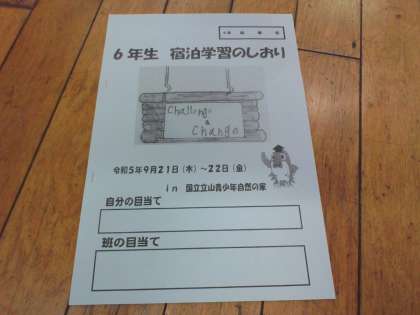 6年生 宿泊学習のしおり
Challenge
&
Change
令和5年9月21日(木)~22日(金)
in 国立立山青少年自然の家
自分の目当て
班の目当て